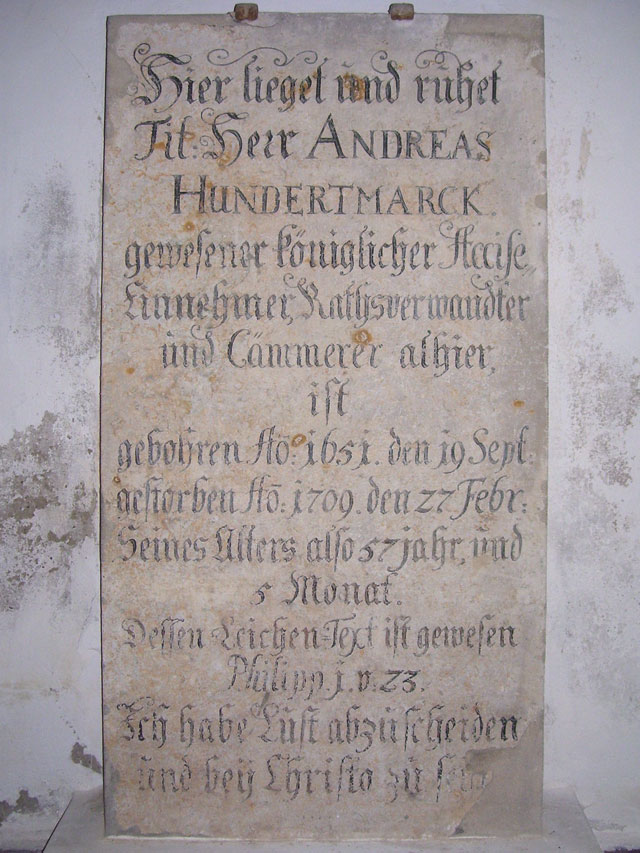 Hier lieget und ruhet
Tit: Herr ANDREAS
HUNDERTMARCK.
gewesener königlicher Accise
Einnehmer, Rathsverwandter
und Cämmerer alhier,
ist
gebohren Aõ: 1651. den 19 Sept:
gestorben Aõ: 1709. den 27 Febr:
Seines Alters also 57 jahr, und
5 Monat.
Dessen Leichen-Text ist gewesen
Philipp. 1. v. 23.
Ich habe Lust abzuscheiden
und bey Christo zu seyn